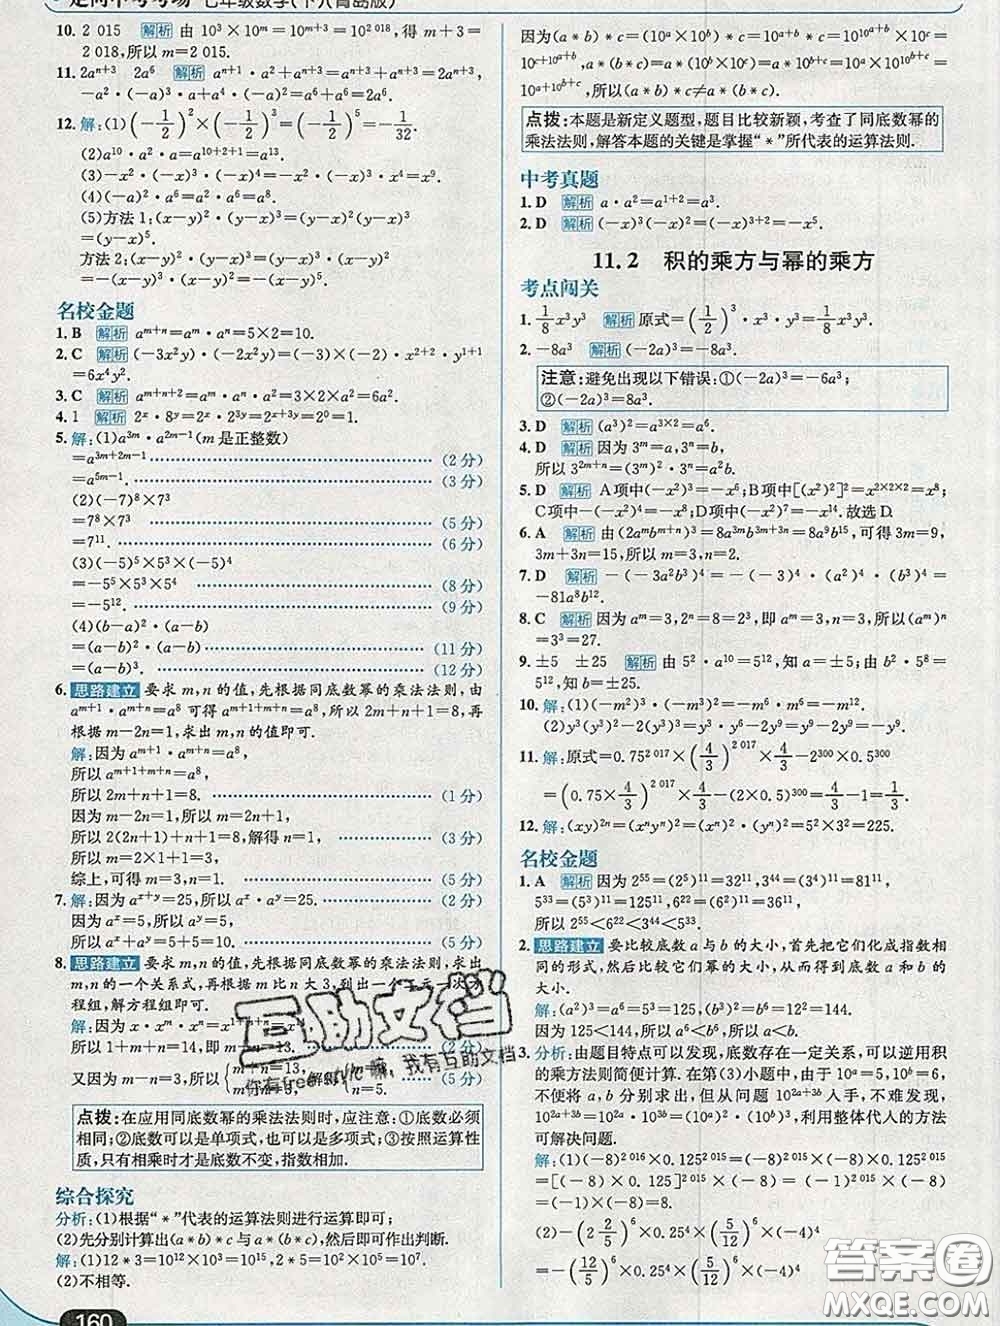 走向中考考场 七年级数学(下)(青岛版)
10. 2 015 解析 由于 10³×10ᵐ=10³⁺ᵐ=10² ⁰¹⁸,得 m+3=
2 018,所以 m=2 015.
11. 2aⁿ⁺³ 2a⁶ 解析 aⁿ⁺¹·a²+aⁿ⁺³=aⁿ⁺³+aⁿ⁺³=2aⁿ⁺³,
-a²·(-a)³·a+a⁴·(-a)²=a⁶+a⁶=2a⁶.
12. 解:(1)(-1/2)²×(-1/2)³=(-1/2)⁵=-1/32.
(2)a¹⁰·a²·a=a¹⁰⁺²⁺¹=a¹³.
(3)-x²·(-x)³·(-x)⁴=-x²·(-x³)·x⁴=x⁹.
(5)方法1:(x-y)²·(y-x)³=(y-x)²(y-x)³
=(y-x)⁵.
方法2:(x-y)²·(y-x)³=(x-y)²·[-(x-y)³]
=-(x-y)⁵.
名校金题
1. B 解析 aᵐ⁺ⁿ=aᵐ·aⁿ=5×2=10.
2. C 解析 (-3x²y)·(-2x²y)=(-3)×(-2)·x²⁺²·y¹⁺¹
=6x⁴y².
3. C 解析 aᵐ⁺ⁿ⁺²=aᵐ·aⁿ·a²=3×2×a²=6a².
4. 1 解析 2ˣ·8ʸ=2ˣ·2³ʸ=2ˣ⁺³ʸ=2⁰=1.
5. 解:(1)a³ᵐ·a²ᵐ⁻¹(m是正整数)
=a³ᵐ⁺²ᵐ⁻¹ (2分)
=a⁵ᵐ⁻¹. (3分)
(2)(-7)⁸×7³
=7⁸×7³ (5分)
=7¹¹. (6分)
(3)(-5)⁵×5³×(-5)⁴
=-5⁵×5³×5⁴ (8分)
=-5¹². (9分)
(4)(b-a)²·(a-b)
=(a-b)²·(a-b) (11分)
=(a-b)³. (12分)
6. 思路建立 要求m,n的值,先根据同底数幂的乘法法则,由
aᵐ⁺¹·aᵐ⁺ⁿ=a⁸可得aᵐ⁺¹⁺ᵐ⁺ⁿ=a⁸,所以2m+n+1=8,再
根据m-2n=1,求出m,n的值即可.
解:因为aᵐ⁺¹·aᵐ⁺ⁿ=a⁸,
所以aᵐ⁺¹⁺ᵐ⁺ⁿ=a⁸,
所以2m+n+1=8. (1分)
因为m-2n=1,所以m=2n+1,
所以2(2n+1)+n+1=8,解得n=1, (3分)
所以m=2×1+1=3,
综上,可得m=3,n=1. (5分)
7. 解:因为aˣ⁺ʸ=25,所以aˣ·aʸ=25. (2分)
因为aˣ=5,所以aʸ=5,
所以aˣ+aʸ=5+5=10. (5分)
8. 思路建立 要求m,n的值,根据同底数幂的乘法法则,求出
m,n的一个关系式,再根据m比n大3,列出一个二元一次方
程组,解方程组即可.
解:因为x·xᵐ·xⁿ=x¹⁺ᵐ⁺ⁿ=x¹⁴,
所以1+m+n=14,即m+n=13. (2分)
又因为m-n=3,所以{m+n=13, m-n=3, 解得{m=8, n=5. (5分)
点拨:在应用同底数幂的乘法法则时,应注意:①底数必须
相同;②底数可以是单项式,也可以是多项式;③按照运算性
质,只有相乘时才是底数不变,指数相加.
综合探究
分析:(1)根据“*”代表的运算法则进行运算即可;
(2)先分别计算出(a*b)*c与a*(b*c),然后即可作出判断.
解:(1)12*3=10¹²×10³=10¹⁵,2*5=10²×10⁵=10⁷.
(2)不相等.
160
因为(a*b)*c=(10ᵃ×10ᵇ)*c=10ᵃ⁺ᵇ*c=10^(10ᵃ⁺ᵇ)×10ᶜ=
10^(10ᵃ⁺ᵇ+c),a*(b*c)=a*(10ᵇ×10ᶜ)=a*10ᵇ⁺ᶜ=10ᵃ×10^(10ᵇ⁺ᶜ)=
10^(a+10ᵇ⁺ᶜ),所以(a*b)*c≠a*(b*c).
点拨:本题是新定义题型,题目比较新颖,考查了同底数幂的
乘法法则,解答本题的关键是掌握“*”所代表的运算法则.
中考真题
1. D 解析 a·a²=a¹⁺²=a³.
2. D 解析 (-x)³(-x)²=(-x)³⁺²=-x⁵.
11.2 积的乘方与幂的乘方
考点闯关
1. 1/8x³y³ 解析 原式=(1/2)³·x³·y³=1/8x³y³.
2. -8a³ 解析 (-2a)³=-8a³.
注意:避免出现以下错误:①(-2a)³=-6a³;
②(-2a)³=8a³.
3. D 解析 (a³)²=a³ˣ²=a⁶.
4. D 解析 因为3ᵐ=a,3ⁿ=b,
所以3²ᵐ⁺ⁿ=(3ᵐ)²·3ⁿ=a²b.
5. D 解析 A项中(-x²)³=-x⁶;B项中[(x²)²]²=x²ˣ²ˣ²=x⁸;
C项中-x²·x³=-x⁵;D项中(-x²)⁷=-x¹⁴.故选D.
6. A 解析 由(2aᵐbᵐ⁺ⁿ)³=8a³ᵐb³ᵐ⁺³ⁿ=8a⁹b¹⁵,可得3m=9,
3m+3n=15,所以m=3,n=2.
7. D 解析 -(-3a²b³)⁴=-(-3)⁴·(a²)⁴·(b³)⁴=
-81a⁸b¹².
8. C 解析 因为aᵐ=3,2ⁿ=8=2³,即aᵐ=3,n=3,所以(aᵐ)ⁿ
=3³=27.
9. ±5 ±25 解析 由5²·a¹⁰=5¹²,知a=±5;由a³=b·
5,知b=±25.
10. 解:(1)(-m²)³·(-m³)²=-m⁶·m⁶=-m¹².
(2)y³(y³)²-2(y³)³=y³·y⁶-2y⁹=y⁹-2y⁹=-y⁹.
11. 解:原式=0.75² ⁰¹⁷×(4/3)² ⁰¹⁷×4/3-2³⁰⁰×0.5³⁰⁰
=(0.75×4/3)² ⁰¹⁷×4/3-(2×0.5)³⁰⁰=4/3-1=1/3.
12. 解:(xy)²ⁿ=(xⁿyⁿ)²=(xⁿ)²·(yⁿ)²=5²×3²=225.
名校金题
1. A 解析 因为2⁵⁵=(2⁵)¹¹=32¹¹,3⁴⁴=(3⁴)¹¹=81¹¹,
5³³=(5³)¹¹=125¹¹,6²²=(6²)¹¹=36¹¹,
所以2⁵⁵<6²²<3⁴⁴<5³³.
2. 思路建立 要比较底数a与b的大小,首先把它们化成指数相
同的形式,然后比较它们幂的大小,从而得到底数a和b的
大小.
解:(a²)³=a⁶=5³=125,(b³)²=b⁶=12²=144.
因为125<144,所以a⁶<b⁶,所以a<b.
3. 分析:由题目特点可以发现,底数存在一定关系,可以逆用积
的乘方法则简便计算.在第(3)小题中,由于10ᵃ=5,10ᵇ=6,
不便将a,b分别求出,但从要求10²ᵃ⁺³ᵇ入手,不难发现,
10²ᵃ⁺³ᵇ=10²ᵃ·10³ᵇ=(10ᵃ)²·(10ᵇ)³,利用整体代入的方法
可解决问题.
解:(1)(-8)² ⁰¹⁶×0.125² ⁰¹⁵=(-8)×(-8)² ⁰¹⁵×0.125² ⁰¹⁵
=[(-8)×0.125]² ⁰¹⁵×(-8)=(-1)² ⁰¹⁵×(-8)
=(-1)×(-8)=8.
(2)-(2 2/5)⁶×0.25⁴×(5/12)⁶×(-4)⁴
=-(12/5)⁶×0.25⁴×(5/12)⁶×4⁴
互助文档
你有freestyle嘛,我有互助文档
答案圈
MXQE.COM